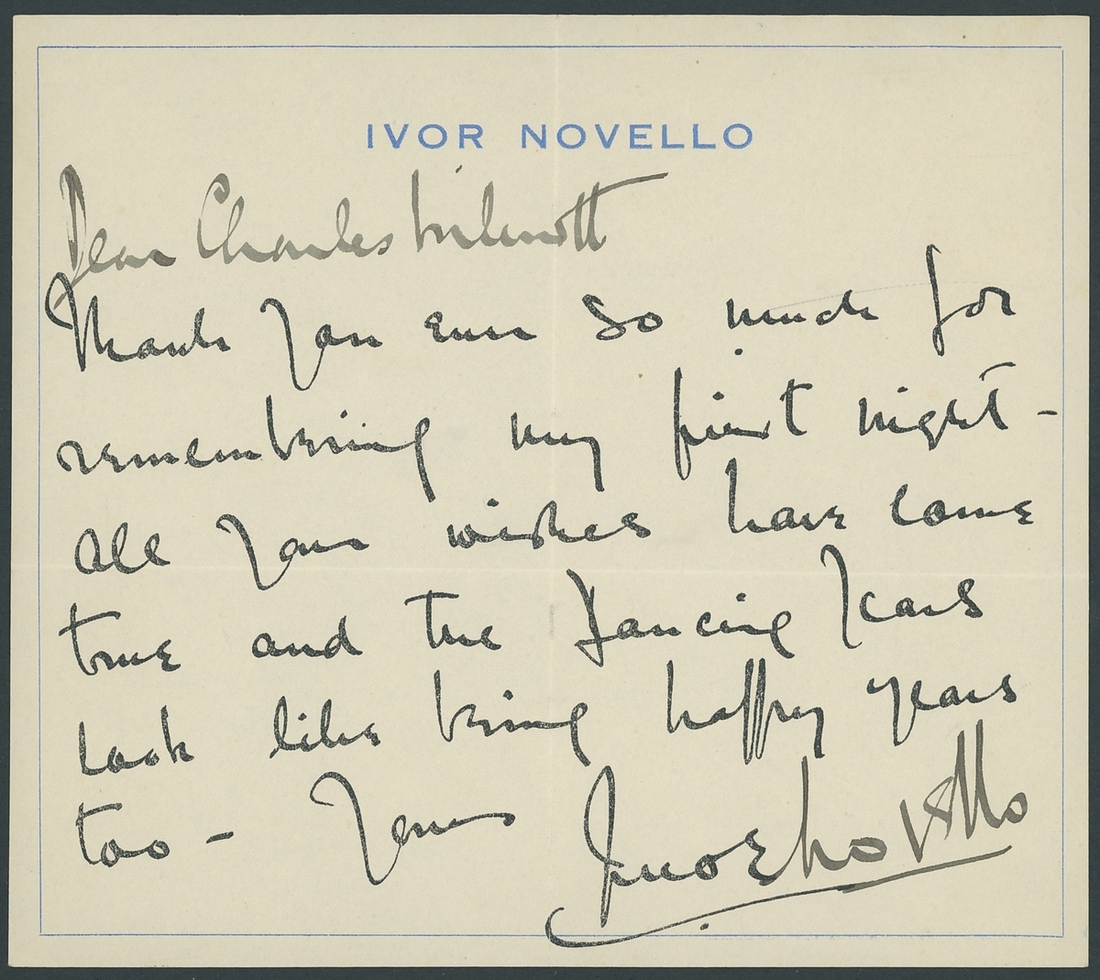 IVOR NOVELLO
Dear Charles
Thank you ever so much for
remembering my first night -
all your wishes have come
true and the Dancing Years
look like being happy years
too - Yours Ivor Novello